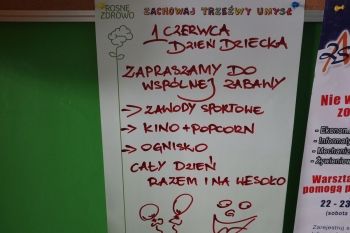 ROSNĘ
ZDROWO
ZACHOWAJ TRZEŹWY UMYSŁ
1 CZERWCA
DZIEŃ DZIECKA
ZAPRASZAMY DO
WSPÓLNEJ ZABAWY
→ ZAWODY SPORTOWE
→ KINO + POPCORN
→ OGNISKO
CAŁY DZIEŃ
RAZEM I NA WESOŁO
Nie w
zo
- Ekonom
- Informaty
- Mechani
- Żywieniow
Warszta
pomogą p
22 - 23
(sobota